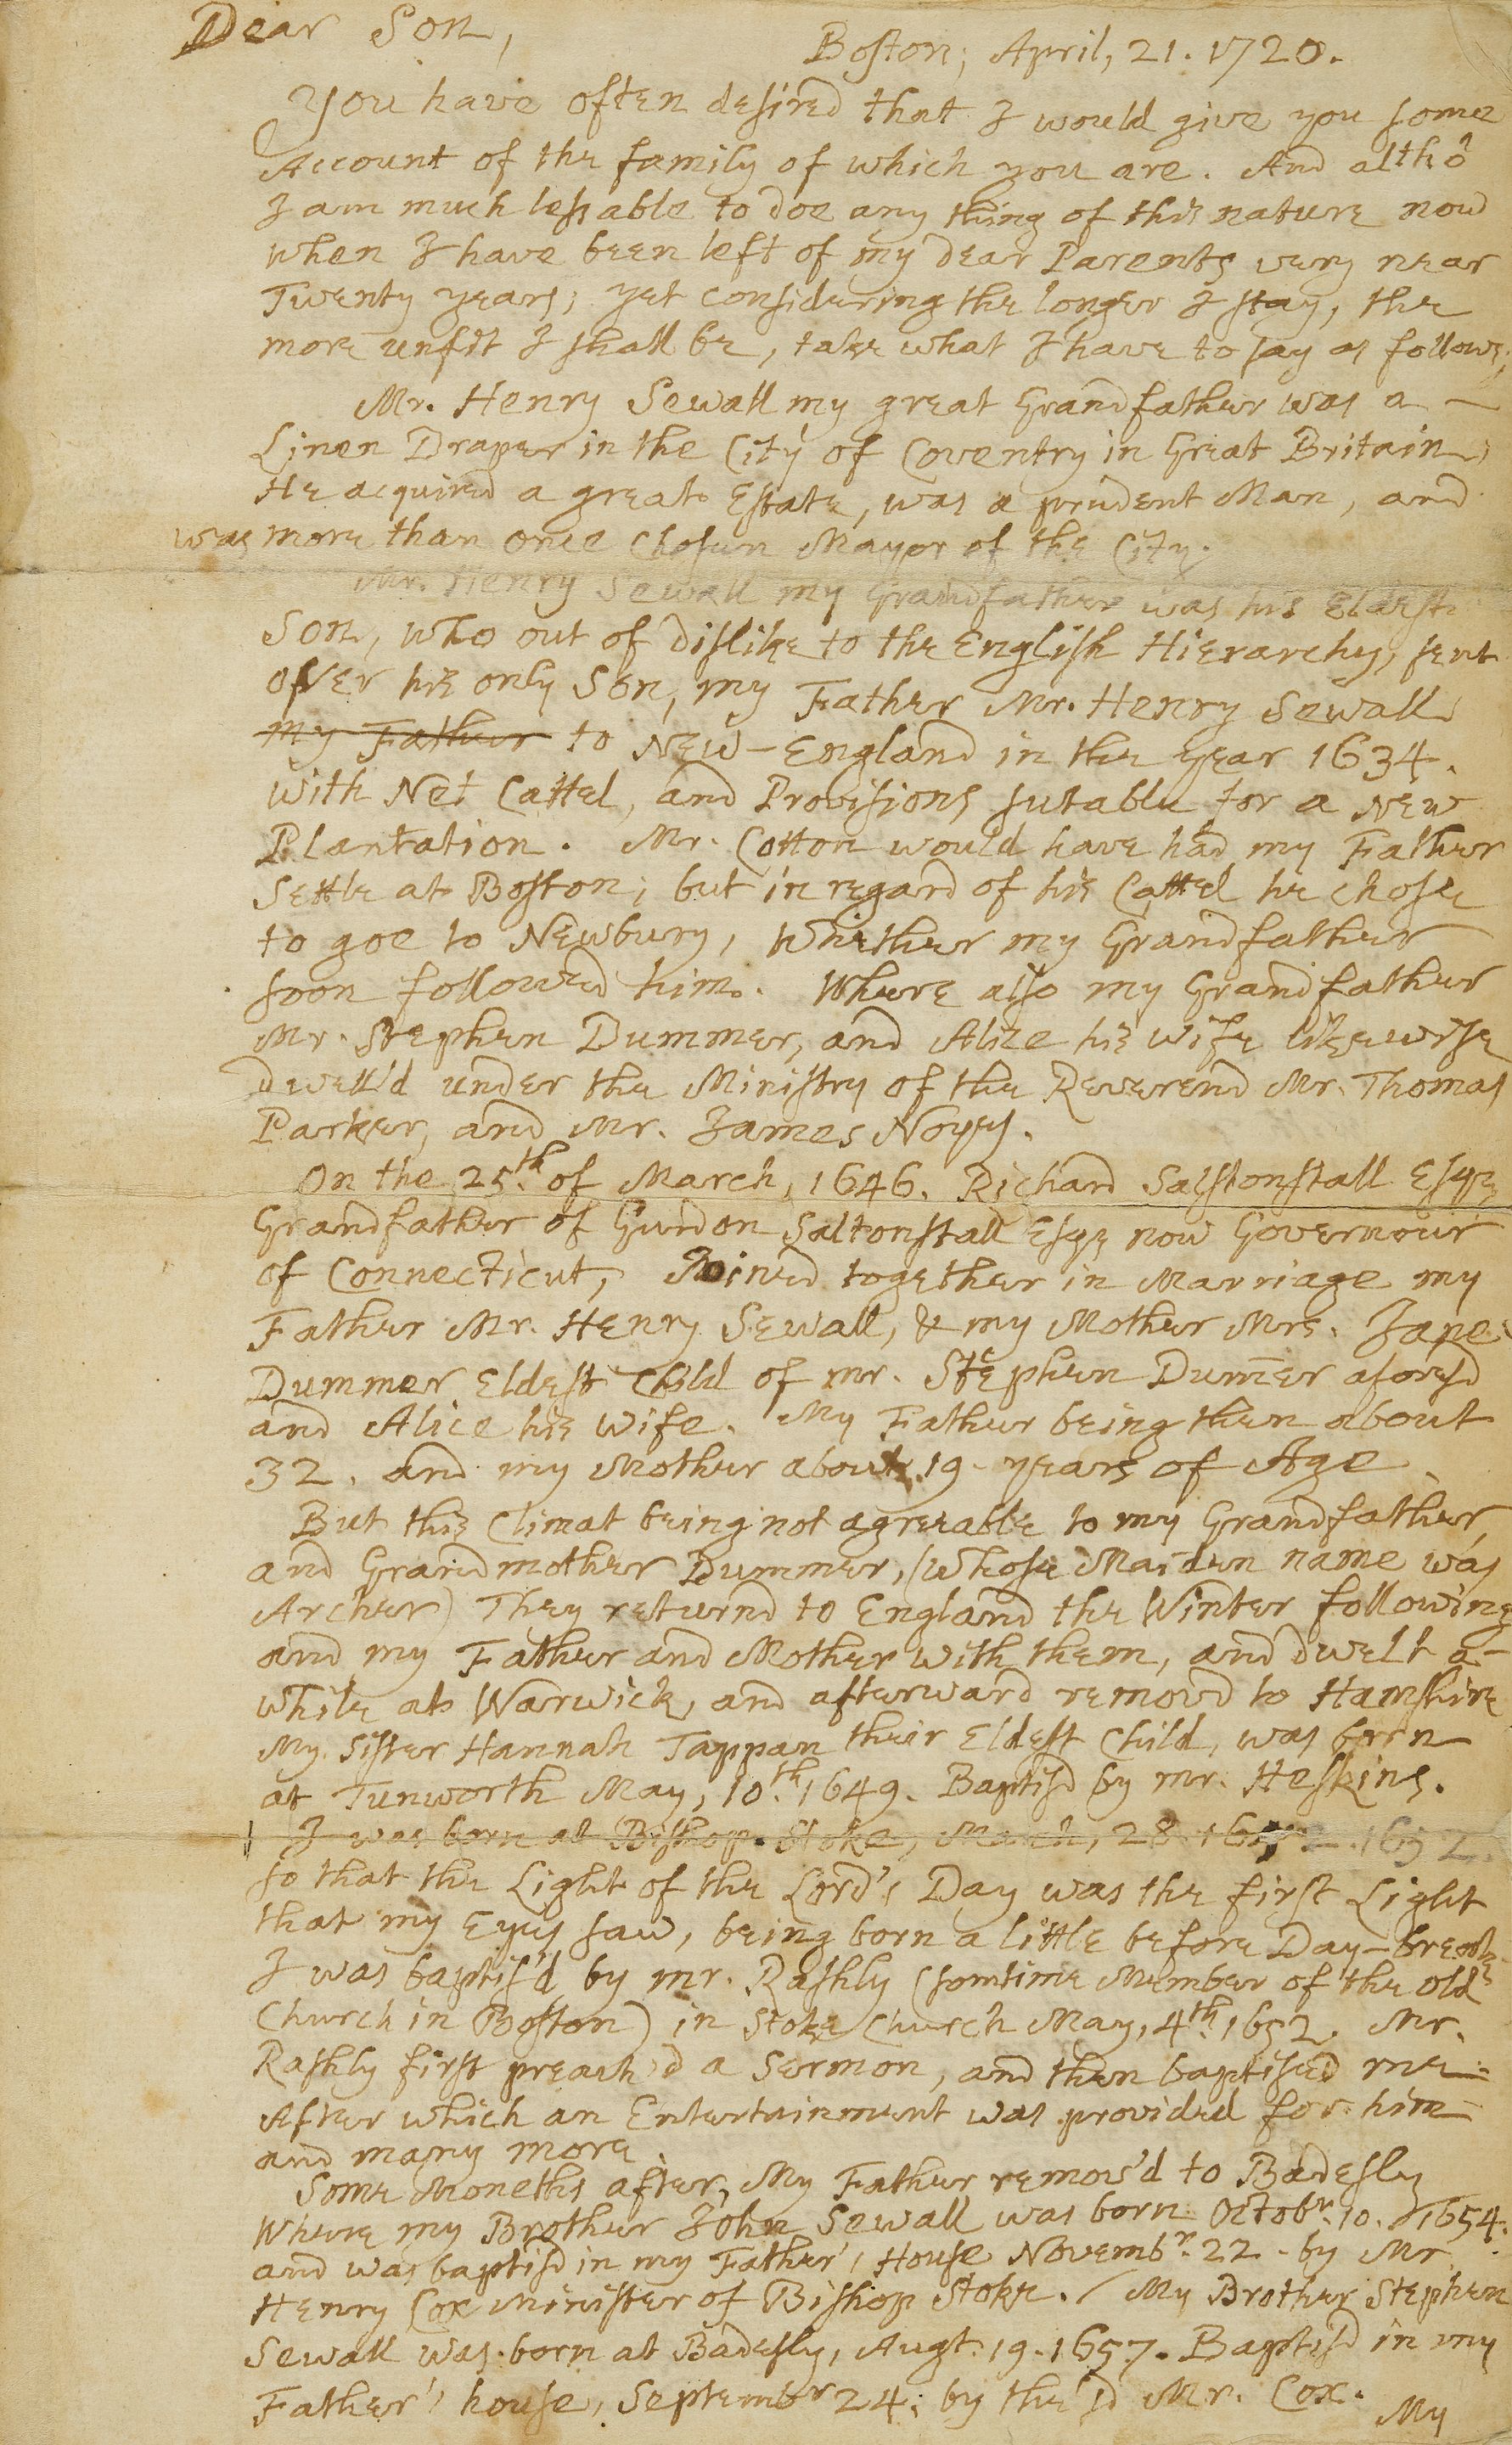 Dear Son,
Boston, April, 21. 1720.
You have often desired that I would give you some
Account of the family of which you are. And altho
I am much less able to doe any thing of this nature now
when I have been left of my dear Parents very near
Twenty years; yet considering the longer I stay, the
more unfit I shall be, take what I have to say as follows,
Mr. Henry Sewall my great Grandfather was a
Linen Draper in the City of Coventry in Great Britain,
He acquired a great Estate, was a prudent Man, and
was more than once Chosen Mayor of the City.
Mr. Henry Sewall my Grandfather was his Eldest
Son, who out of dislike to the English Hierarchy, sent
over his only Son, my Father Mr. Henry Sewall
my Father to New-England in the year 1634.
with Net Cattel, and Provisions sutable for a New
Plantation. Mr. Cotton would have had my Father
Settle at Boston; but in regard of his Cattel he chose
to goe to Newbury, Whither my Grandfather
soon followed him. Where also my Grandfather
Mr. Stephen Dummer, and Alice his wife likewise
dwell'd under the Ministry of the Reverend Mr. Thomas
Parker, and Mr. James Noyes.
On the 25th. of March, 1646. Richard Salstonstall Esqr
Grandfather of Gurdon Saltonstall Esqr now Governour
of Connecticut, Joined together in Marriage my
Father Mr. Henry Sewall, & my Mother Mrs. Jane
Dummer Eldest Child of mr. Stephen Dum̅er aforesd
and Alice his wife. My Father being then about
32. and my Mother about 19 years of Age.
But this Climat being not agreeable to my Grandfather,
and Grandmother Dummer, (whose Maiden name was
Archer) They returnd to England the Winter following
and my Father and Mother with them, and dwelt a-
while at Warwick, and afterward removd to Hamshire
My Sister Hannah Tappan their Eldest Child, was born
at Tunworth May, 10th. 1649. Baptisd by mr. Heskins.
I was born at Bishop-Stoke, March, 28. 1652
so that the Light of the Lord's Day was the first Light
that my Eyes saw, being born a little before Day-break
I was baptis'd by mr. Rashly (somtime Member of the old
Church in Boston) in Stoke Church May, 4th. 1652. Mr.
Rashly first preach'd a Sermon, and then baptised me
After which an Entertainment was provided for him
and many more.
Some Moneths after, My Father remov'd to Badesly
Where my Brother John Sewall was born Octobr. 10. 1654.
and was baptisd in my Father's House Novembr. 22. by Mr
Henry Cox Minister of Bishop Stoke. My Brother Stephen
Sewall was born at Badesly, Augt. 19. 1657. Baptisd in my
Father's house, Septembr 24. by the sd Mr. Cox.
My